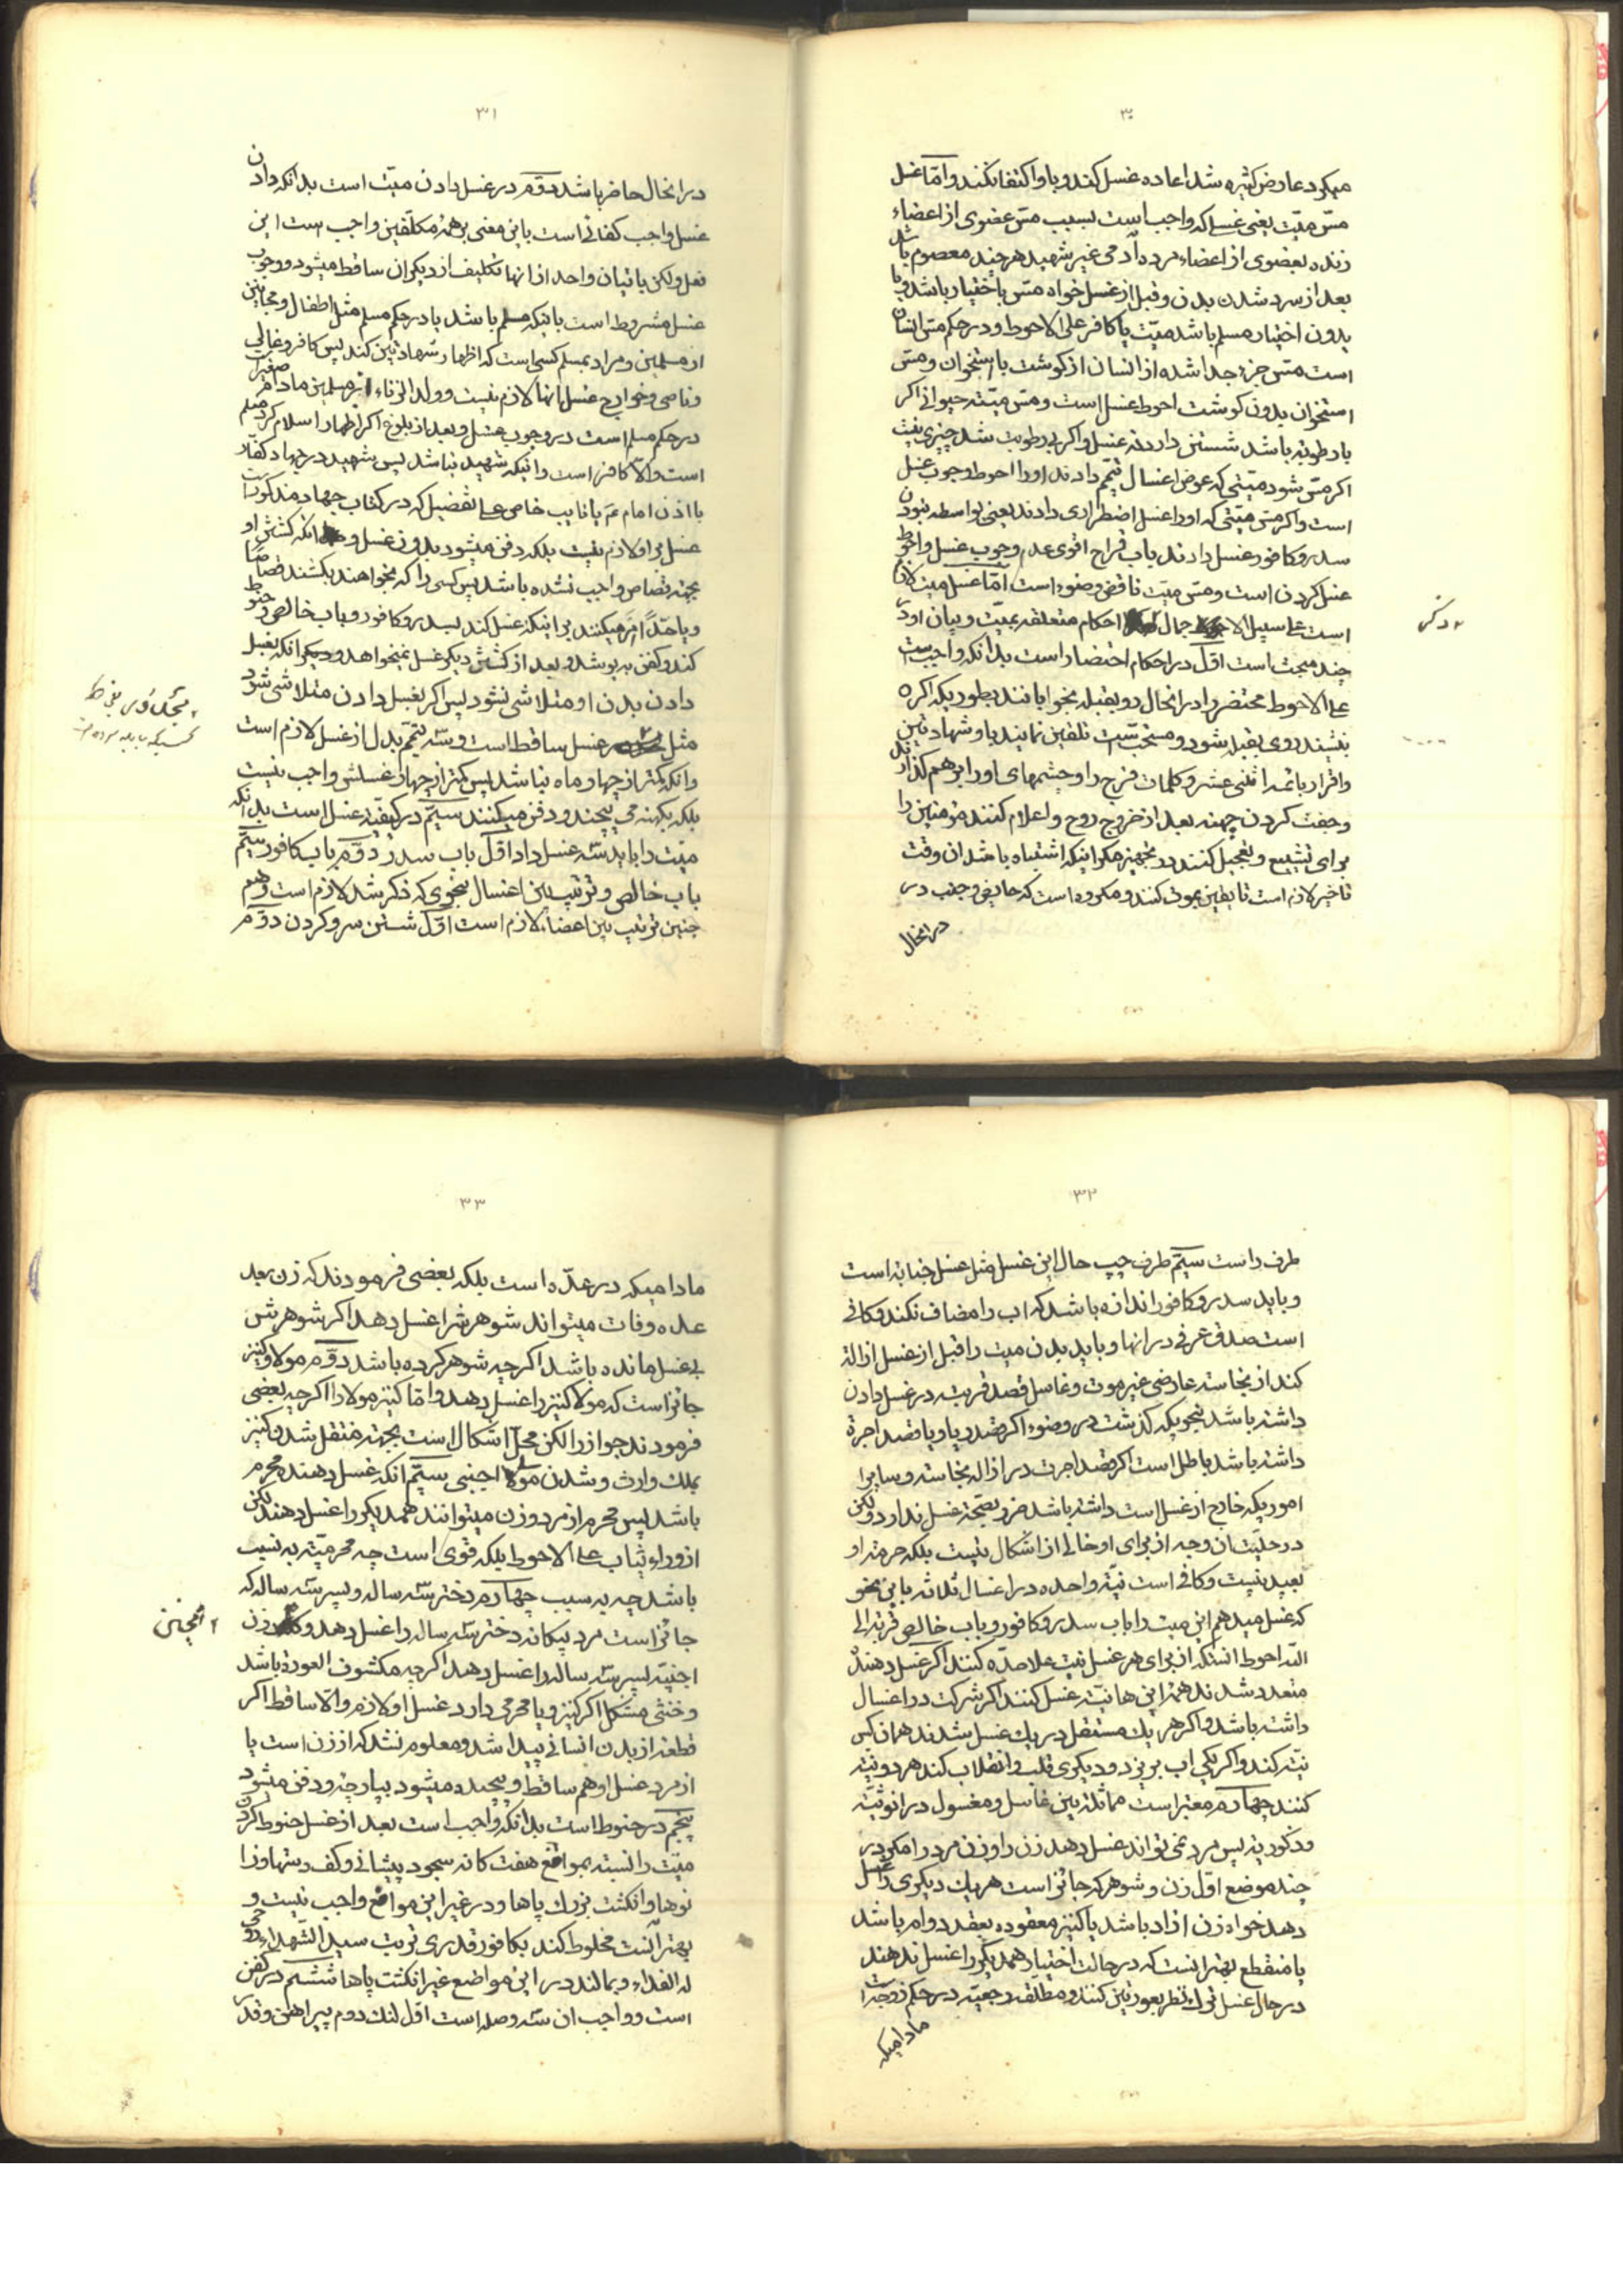 ۳۰
میکرد عارض کثیره شد اعاده غسل کند و باو اکتفا نکند و امّا غسل
مسّ میّت یعنی غسلی که واجب است بسبب مسّ عضوی از اعضاء
زنده بعضوی از اعضاء مرده آدمی غیر شهید هر چند معصوم باشد
بعد از سرد شدن بدن و قبل از غسل خواه مسّ باختیار باشد و یا
بدون اختیار مسلم باشد میّت یا کافر علی الاحوط و در حکم مسّ انسان
است مسّ جزء جدا شده از انسان از کوشت با استخوان و مسّ
استخوان بدون کوشت احوط غسل است و مسّ میته حیوانی اکر
با رطوبة باشد شستن دارد نه غسل و اکر بی رطوبت شد چیزی نیست
اکر مسّ شود میّتی که عوض اغسال تیمّم دادند او را احوط وجوب غسل
است و اکر مسّ میّتی که او را غسل اضطراری دادند یعنی بواسطه نبودن
سدر و کافور غسل دادند باب قراح اقوی عدم وجوب غسل و احوط
غسل کردن است و مسّ میّت ناقض وضوء است امّا غسل میّت لازم
است علی سبیل الاجمال احکام متعلقه بمیّت و بیان او در
چند مبحث است اوّل در احکام احتضار است بدانکه واجب است
علی الاحوط محتضر را در انحال رو بقبله بخوابانند بطوریکه اکر
بنشیند روی بقبله شود و مستحبّ است تلقین نمایند باو شهادتین
و اقرار بائمه اثنی عشر و کلمات فرج را و چشمهای او را برهم کذارند
و جفت کردن چهنه بعد از خروج روح و اعلام کنند مؤمنین را
برای تشییع و تعجیل کنند در تجهیز مکر اینکه اشتباه باشد ان وقت
تاخیر لازم است تا یقین بموت کنند و مکروه است که حایض و جنب در
در انحال
۳۱
در انحال حاضر باشد دوّم در غسل دادن میّت است بدانکه دادن
غسل واجب کفائی است باین معنی بر همهٔ مکلّفین واجب است این
فعل و لکن باتیان واحد از انها تکلیف از دیکران ساقط میشود و وجوب
غسل مشروط است باینکه مسلم باشد یا در حکم مسلم مثل اطفال و مجانین
از مسلمین و مراد بمسلم کسی است که اظهار شهادتین کند پس کافر و غالی
و ناصبی و خوارج غسل انها لازم نیست و ولد الزناء از مسلمین مادام صغیر است
در حکم مسلم است در وجوب غسل و بعد از بلوغ اکر اظهار اسلام کرد مسلم
است و الّا کافر است و اینکه شهید نباشد پس شهید در جهاد کفّار
با اذن امام ع یا نایب خاص علی تفضیل که در کتاب جهاد مذکور است
غسل بر او لازم نیست بلکه دفن میشود بدون غسل و انکه کشتن او
بجهة قصاص واجب نشده باشد پس کسی را که بخواهند بکشند قصاصا
و یا حدّاً امر میکنند بر اینکه غسل کند بسدر و کافور و باب خالص و حنوط
کند و کفن بپوشد و بعد از کشتن دیکر غسل نمیخواهد و دیکر انکه بغسل
دادن بدن او متلاشی نشود پس اکر بغسل دادن متلاشی شود
مثل غسل ساقط است و سه تیمّم بدل از غسل لازم است
و انکه کمتر از چهار ماه نباشد پس کمتر از چهار غسلش واجب نیست
بلکه بکهنه می پیچند و دفن میکنند سیّم در کیفیّت غسل است بدانکه
میّت را باید سه غسل داد اوّل باب سدر دوّم باب کافور سیّم
باب خالص و ترتیب بین اغسال بنحوی که ذکر شد لازم است و هم
چنین ترتیب بین اعضاء لازم است اوّل شستن سر و کردن دوّم
۳۲
طرف راست سیّم طرف چپ حال این غسل مثل غسل جنابة است
و باید سدر و کافور اندازه باشد که اب را مضاف نکند و کافی
است صدق عرفی در انها و باید بدن میت را قبل از غسل ازالة
کند از نجاسة عارضی غیر موت و غاسل قصد قربة در غسل دادن
داشته باشد بنحویکه کذشت در وضوء اکر قصد ریا و یا قصد اجرة
داشته باشد باطل است اکر قصد اجرت در ازاله نجاسة و سایر
اموریکه خارج از غسل است داشته باشد ضرر بصحّة غسل ندارد و لکن
در حلیّت ان وجه از برای او خالی از اشکال نیست بلکه حرمة او
بعید نیست و کافی است نیّة واحده در اغسال ثلاثه باین نحو
که غسل میدهم این میت را باب سدر و کافور و باب خالص قربة الی
الله احوط انستکه از برای هر غسل نیت علاحدّه کنند اکر غسل دهنده
متعدد شدند همهٔ این ها نیّة غسل کنند اکر شرکت در اغسال
داشته باشد و اکر هر یك مستقل در یك غسل شدند همان کس
نیّة کند و اکر یکی اب بریزد و دیکری قلب و انقلاب کند هر دو نیّة
کنند چهارم معتبر است مماثلة بین غاسل و مغسول در انوثیّة
و ذکوریة پس مرد نمی تواند غسل دهد زن را و زن مرد را مکر در
چند موضع اوّل زن و شوهر که جائز است هر یك دیکری را غسل
دهد خواه زن ازاد باشد یا کنیز معقوده بعقد دوام باشد
یا منقطع بهتر اینست که در حالت اختیار همدیکر را غسل ندهند
در حال غسل ترك نظر بعورتین کنند و مطلّقه رجعیّه در حکم زوجه است
مادامیکه
۳۳
مادامیکه در عدّه است بلکه بعضی فرمودند که زن بعد
عده وفات میتواند شوهرش را غسل دهد اکر شوهرش
بی غسل مانده باشد اکرچه شوهر کرده باشد دوّم مولا و کنیز
جائز است که مولا کنیز را غسل دهد و امّا کنیز مولا را اکرچه بعضی
فرمودند جواز را لکن محلّ اشکال است بجهة منتقل شدن کنیز
بملك وارث و شدن مولا اجنبی سیّم انکه غسل دهنده محرم
باشد پس محرم از مرد و زن میتوانند همدیکر را غسل دهند لکن
از وراء ثیاب علی الاحوط بلکه قوی است چه محرمیّة به نسب
باشد چه به سبب چهارم دختر سه ساله و پسر سه ساله که
جائز است مرد بیکانه دختر سه ساله را غسل دهد و زن
اجنبیّه پسر سه ساله را غسل دهد اکرچه مکشوف العورة باشد
و خنثی مشکل اکر کنیز و یا محرمی دارد غسل او لازم و الّا ساقط اکر
قطعه از بدن انسانی پیدا شد و معلوم نشد که از زن است یا
از مرد غسل او هم ساقط و پیچیده میشود بپارچه و دفن میشود
پنجم در حنوط است بدانکه واجب است بعد از غسل حنوط کردن
میّت را نسبة بمواقع هفت کانه سجود پیشانی و کف دستها و زا
نوها و انکشت بزرك پاها و در غیر این مواقع واجب نیست و
بهتر آنست مخلوط کند بکافور قدری تربت سید الشهداء روحی
له الفداء و بمالند در این مواضع غیر انکشت پاها ششم در کفن
است و واجب ان سه وصله است اوّل لنك دوم پیراهن و قدر
همچنین